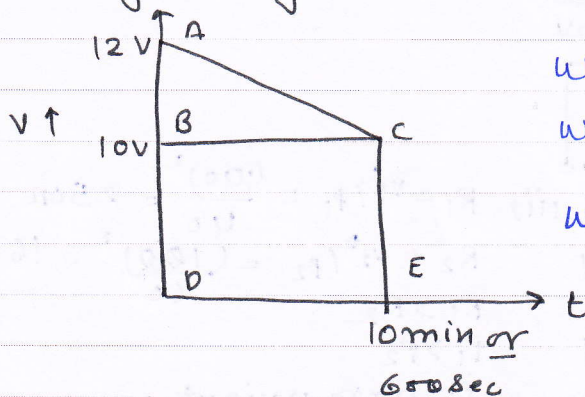 12 V A
V ↑
B C
10V
D E
t
10 min or
600 sec